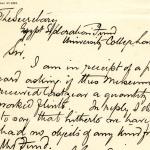 The Secretary,
Egypt Exploration Fund
University College
Sir,
I am in receipt of a p
card asking if this Museum
received last year a quantity
worked flints. In reply I de
to say that hitherto we have
had no objects of any kind fr
Mrs.